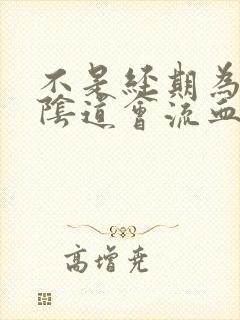 不是經期為
陰道會流血
高增堯